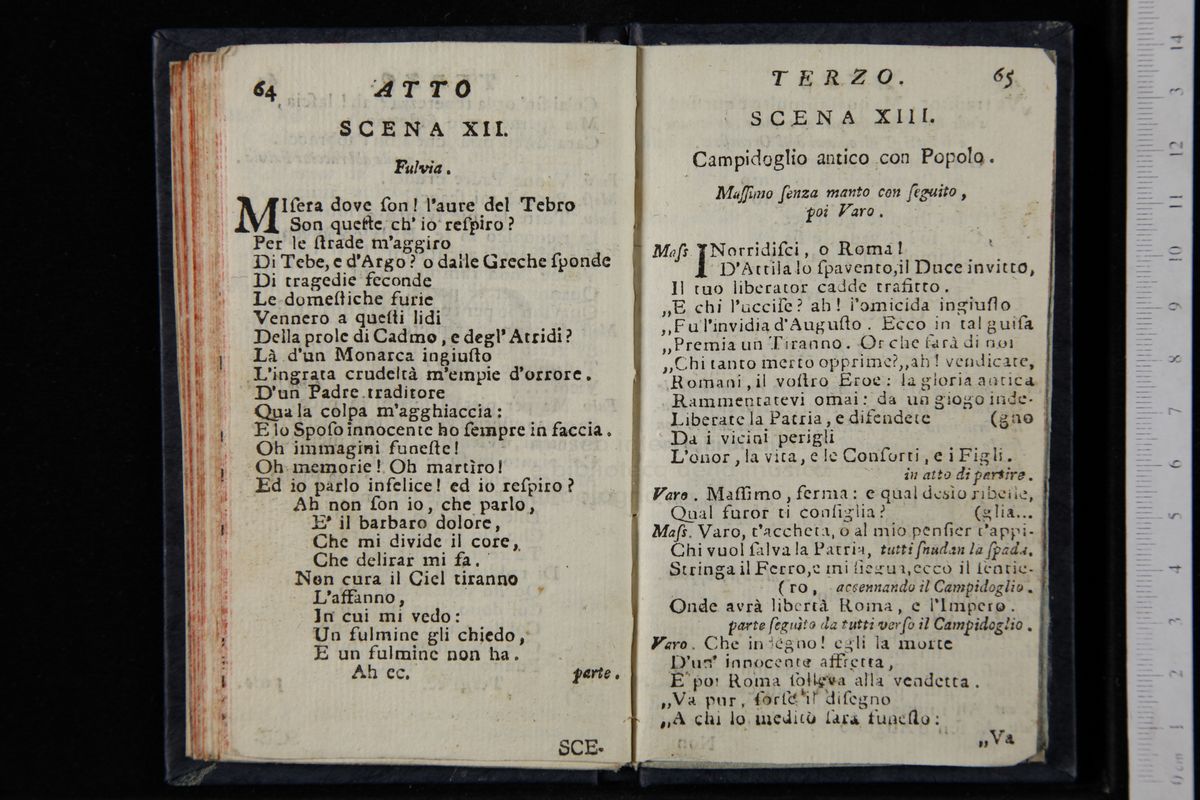 64 ATTO
SCENA XII.
Fulvia.
MIſera dove ſon! l'aure del Tebro
Son queſte ch' io reſpiro?
Per le ſtrade m'aggiro
Di Tebe, e d'Argo? o dalle Greche ſponde
Di tragedie feconde
Le domeſtiche furie
Vennero a queſti lidi
Della prole di Cadmo, e degl' Atridi?
Là d'un Monarca ingiuſto
L'ingrata crudeltà m'empie d'orrore.
D'un Padre traditore
Qua la colpa m'agghiaccia:
E lo Spoſo innocente ho ſempre in faccia.
Oh immagini funeſte!
Oh memorie! Oh martìro!
Ed io parlo infelice! ed io reſpiro?
Ah non ſon io, che parlo,
E' il barbaro dolore,
Che mi divide il core,
Che delirar mi fa.
Non cura il Ciel tiranno
L'affanno,
In cui mi vedo:
Un fulmine gli chiedo,
E un fulmine non ha.
Ah ec. parte.
SCE-
TERZO. 65
SCENA XIII.
Campidoglio antico con Popolo.
Maſſimo ſenza manto con ſeguito,
poi Varo.
Maſſ INorridiſci, o Roma!
D'Attila lo ſpavento, il Duce invitto,
Il tuo liberator cadde trafitto.
„E chi l'ucciſe? ah! l'omicida ingiuſto
„Fu l'invidia d'Auguſto. Ecco in tal guiſa
„Premia un Tiranno. Or che farà di noi
„Chi tanto merto opprime?„ah! vendicate,
Romani, il voſtro Eroe: la gloria antica
Rammentatevi omai: da un giogo inde-
Liberate la Patria, e difendete (gno
Da i vicini perigli
L'onor, la vita, e le Conſorti, e i Figli.
in atto di partire.
Varo. Maſſimo, ferma: e qual desìo ribelle,
Qual furor ti conſiglia? (glia...
Maſ. Varo, t'accheta, o al mio penſier t'appi-
Chi vuol ſalva la Patria, tutti ſnudan la ſpada.
Stringa il Ferro, e mi ſiegua, ecco il ſentie-
(ro, accennando il Campidoglio.
Onde avrà libertà Roma, e l'Impero.
parte ſeguito da tutti verſo il Campidoglio.
Varo. Che indegno! egli la morte
D'un' innocente affretta,
E poi Roma ſolleva alla vendetta.
„Va pur, forſe il diſegno
„A chi lo meditò ſarà funeſto:
„Va
14
13
12
11
10
9
8
7
6
5
4
3
2
1
0 cm